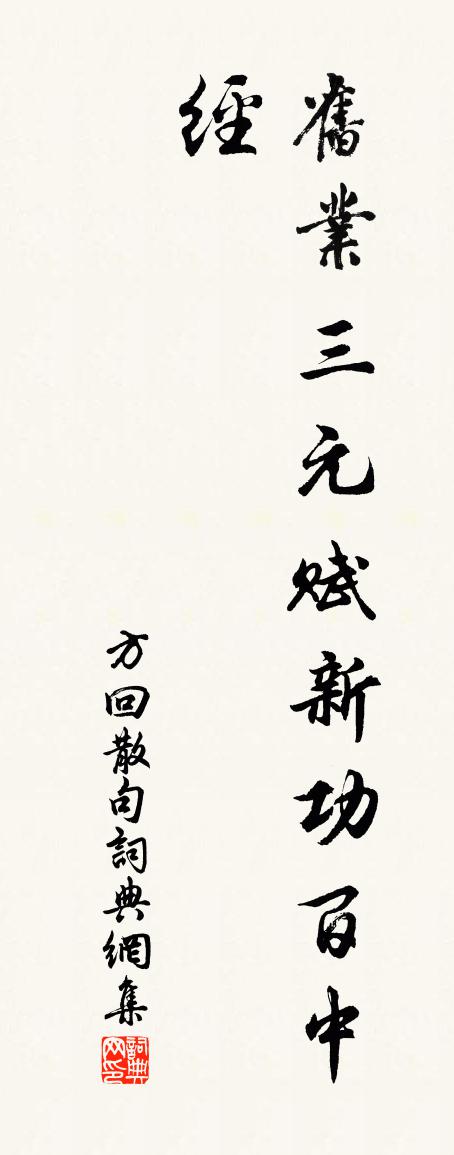 舊業三元賦新功百中
經
方回散句詞典網集
詞典网印